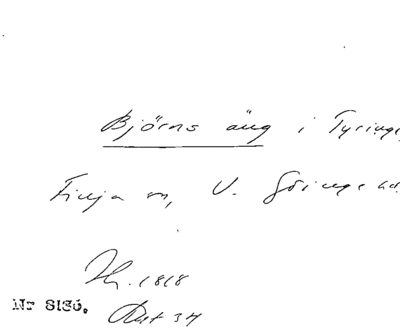 Björns äng i Tyringe,
Finja sn, V. Göinge hd.
1818
Nr 8186.